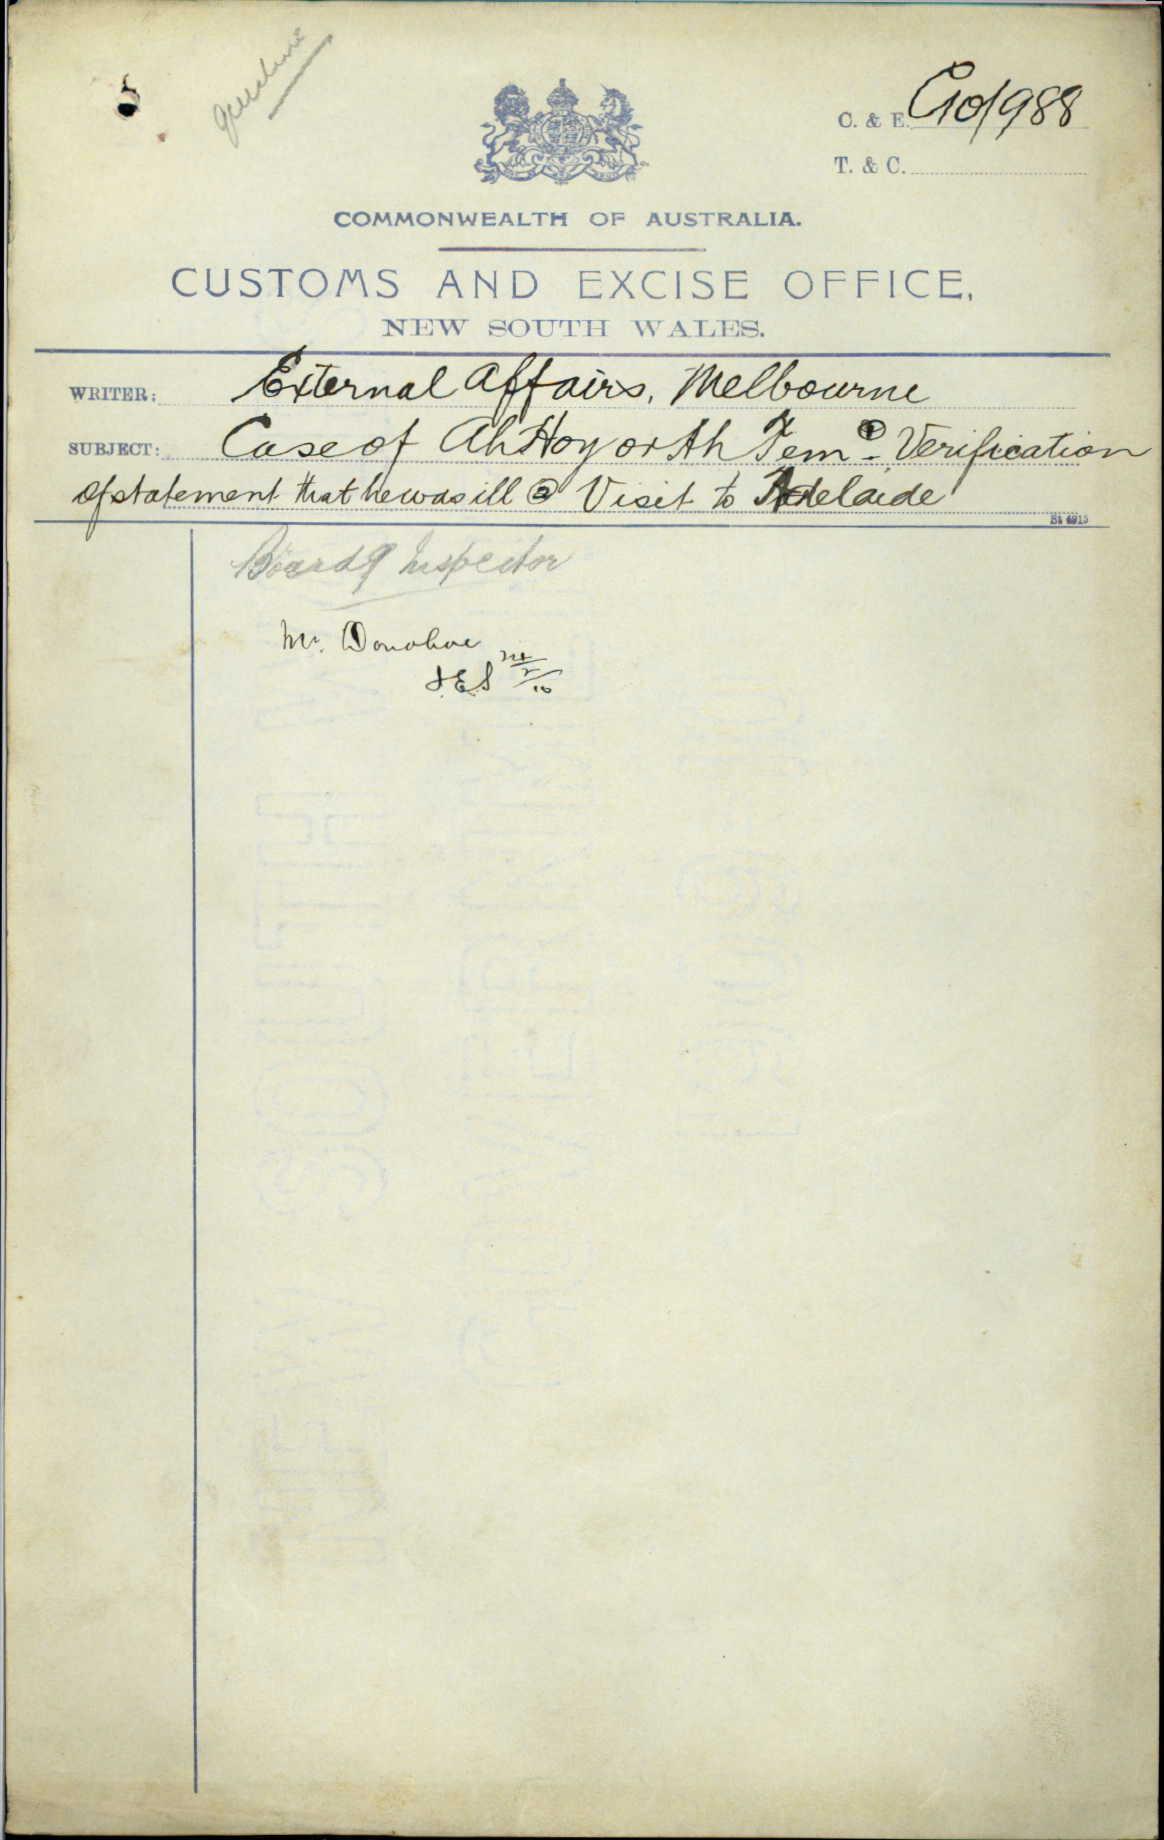 C. & E. C10/988
T. & C.
COMMONWEALTH OF AUSTRALIA.
CUSTOMS AND EXCISE OFFICE,
NEW SOUTH WALES.
WRITER: External Affairs, Melbourne
SUBJECT: Case of Ah Hoy or Ah Fem - ① Verification
of statement that he was ill ② Visit to Adelaide
St 4915
Boardg Inspector
Mr. Donohoe
24/2/10
NEW SOUTH WALES
GOVERNMENT